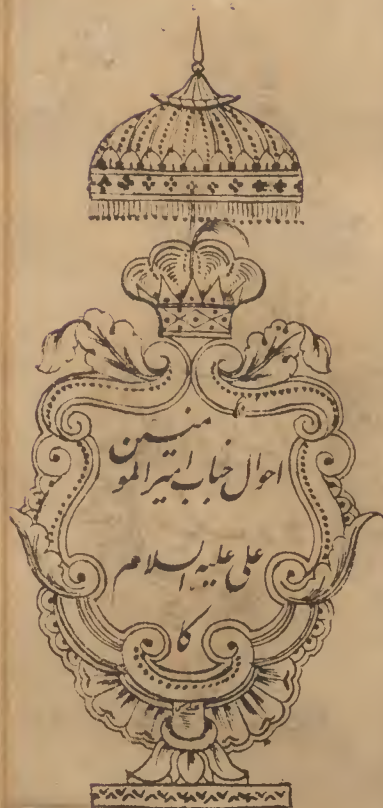 احوال جناب امیرالمومنین
علی علیہ السلام
کا